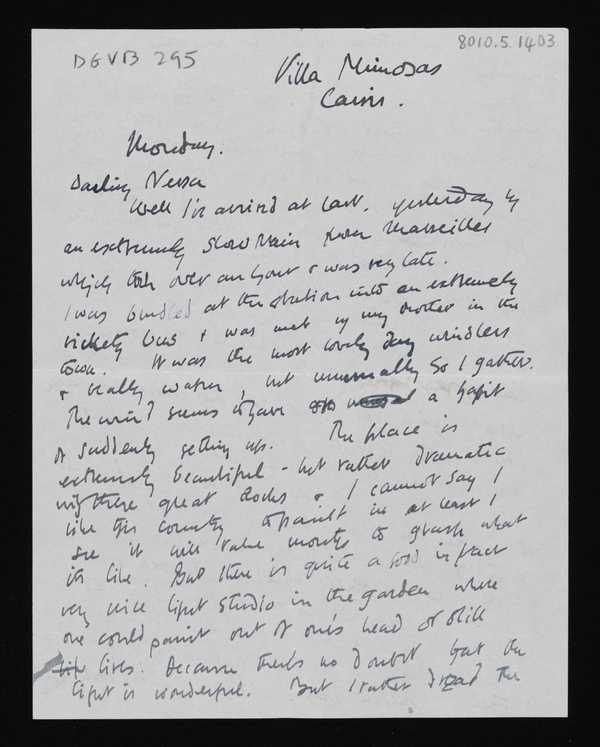 DGVB 295
8010.5.1403
Villa Mimosas
Cassis.
Monday.
Darling Nessa
Well I've arrived at last. Yesterday by
an extremely slow train from Marseilles
which took over an hour & was very late.
I was bundled at the station into an extremely
rickety bus & was met by my mother in the
town. It was the most lovely day windless
& really warm, but unusually so I gather.
The wind seems to have a habit
of suddenly getting up. The place is
extremely beautiful - but rather dramatic
with these great rocks & I cannot say I
like this country to paint in at least I
see it will take months to grasp what
its like. But there is quite a good in fact
very nice light studio in the garden where
one could paint out of one's head or still
lives. Because there's no doubt that the
light is wonderful. But I rather dread the